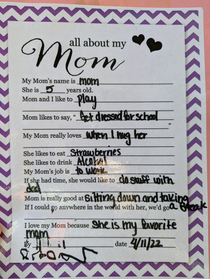 all about my
Mom
My Mom's name is mom
She is 5 years old.
Mom and I like to play
Mom likes to say, "Get dressed for school
My Mom really loves when I hug her
She likes to eat Strawberries
She likes to drink Alcohol
My Mom's job is to work
If she had time, she would like to do stuff with
dad
Mom is really good at sitting down and taking
If I could go anywhere in the world with her, we'd go a break
I love my Mom because she is my favorite
mom
By date 4/11/22